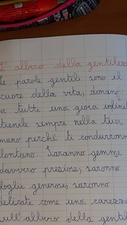 L'albero della gentilezz
le parole gentili sono il
cuore della vita, donan-
a tutti una gioia infini
tienile sempre nella tua
meno perché ti condurrann
lontano. Saranno gemme
davvero preziose, saranno
foglie generose, saranno
delicate come una carezza
sull'albero della gentil